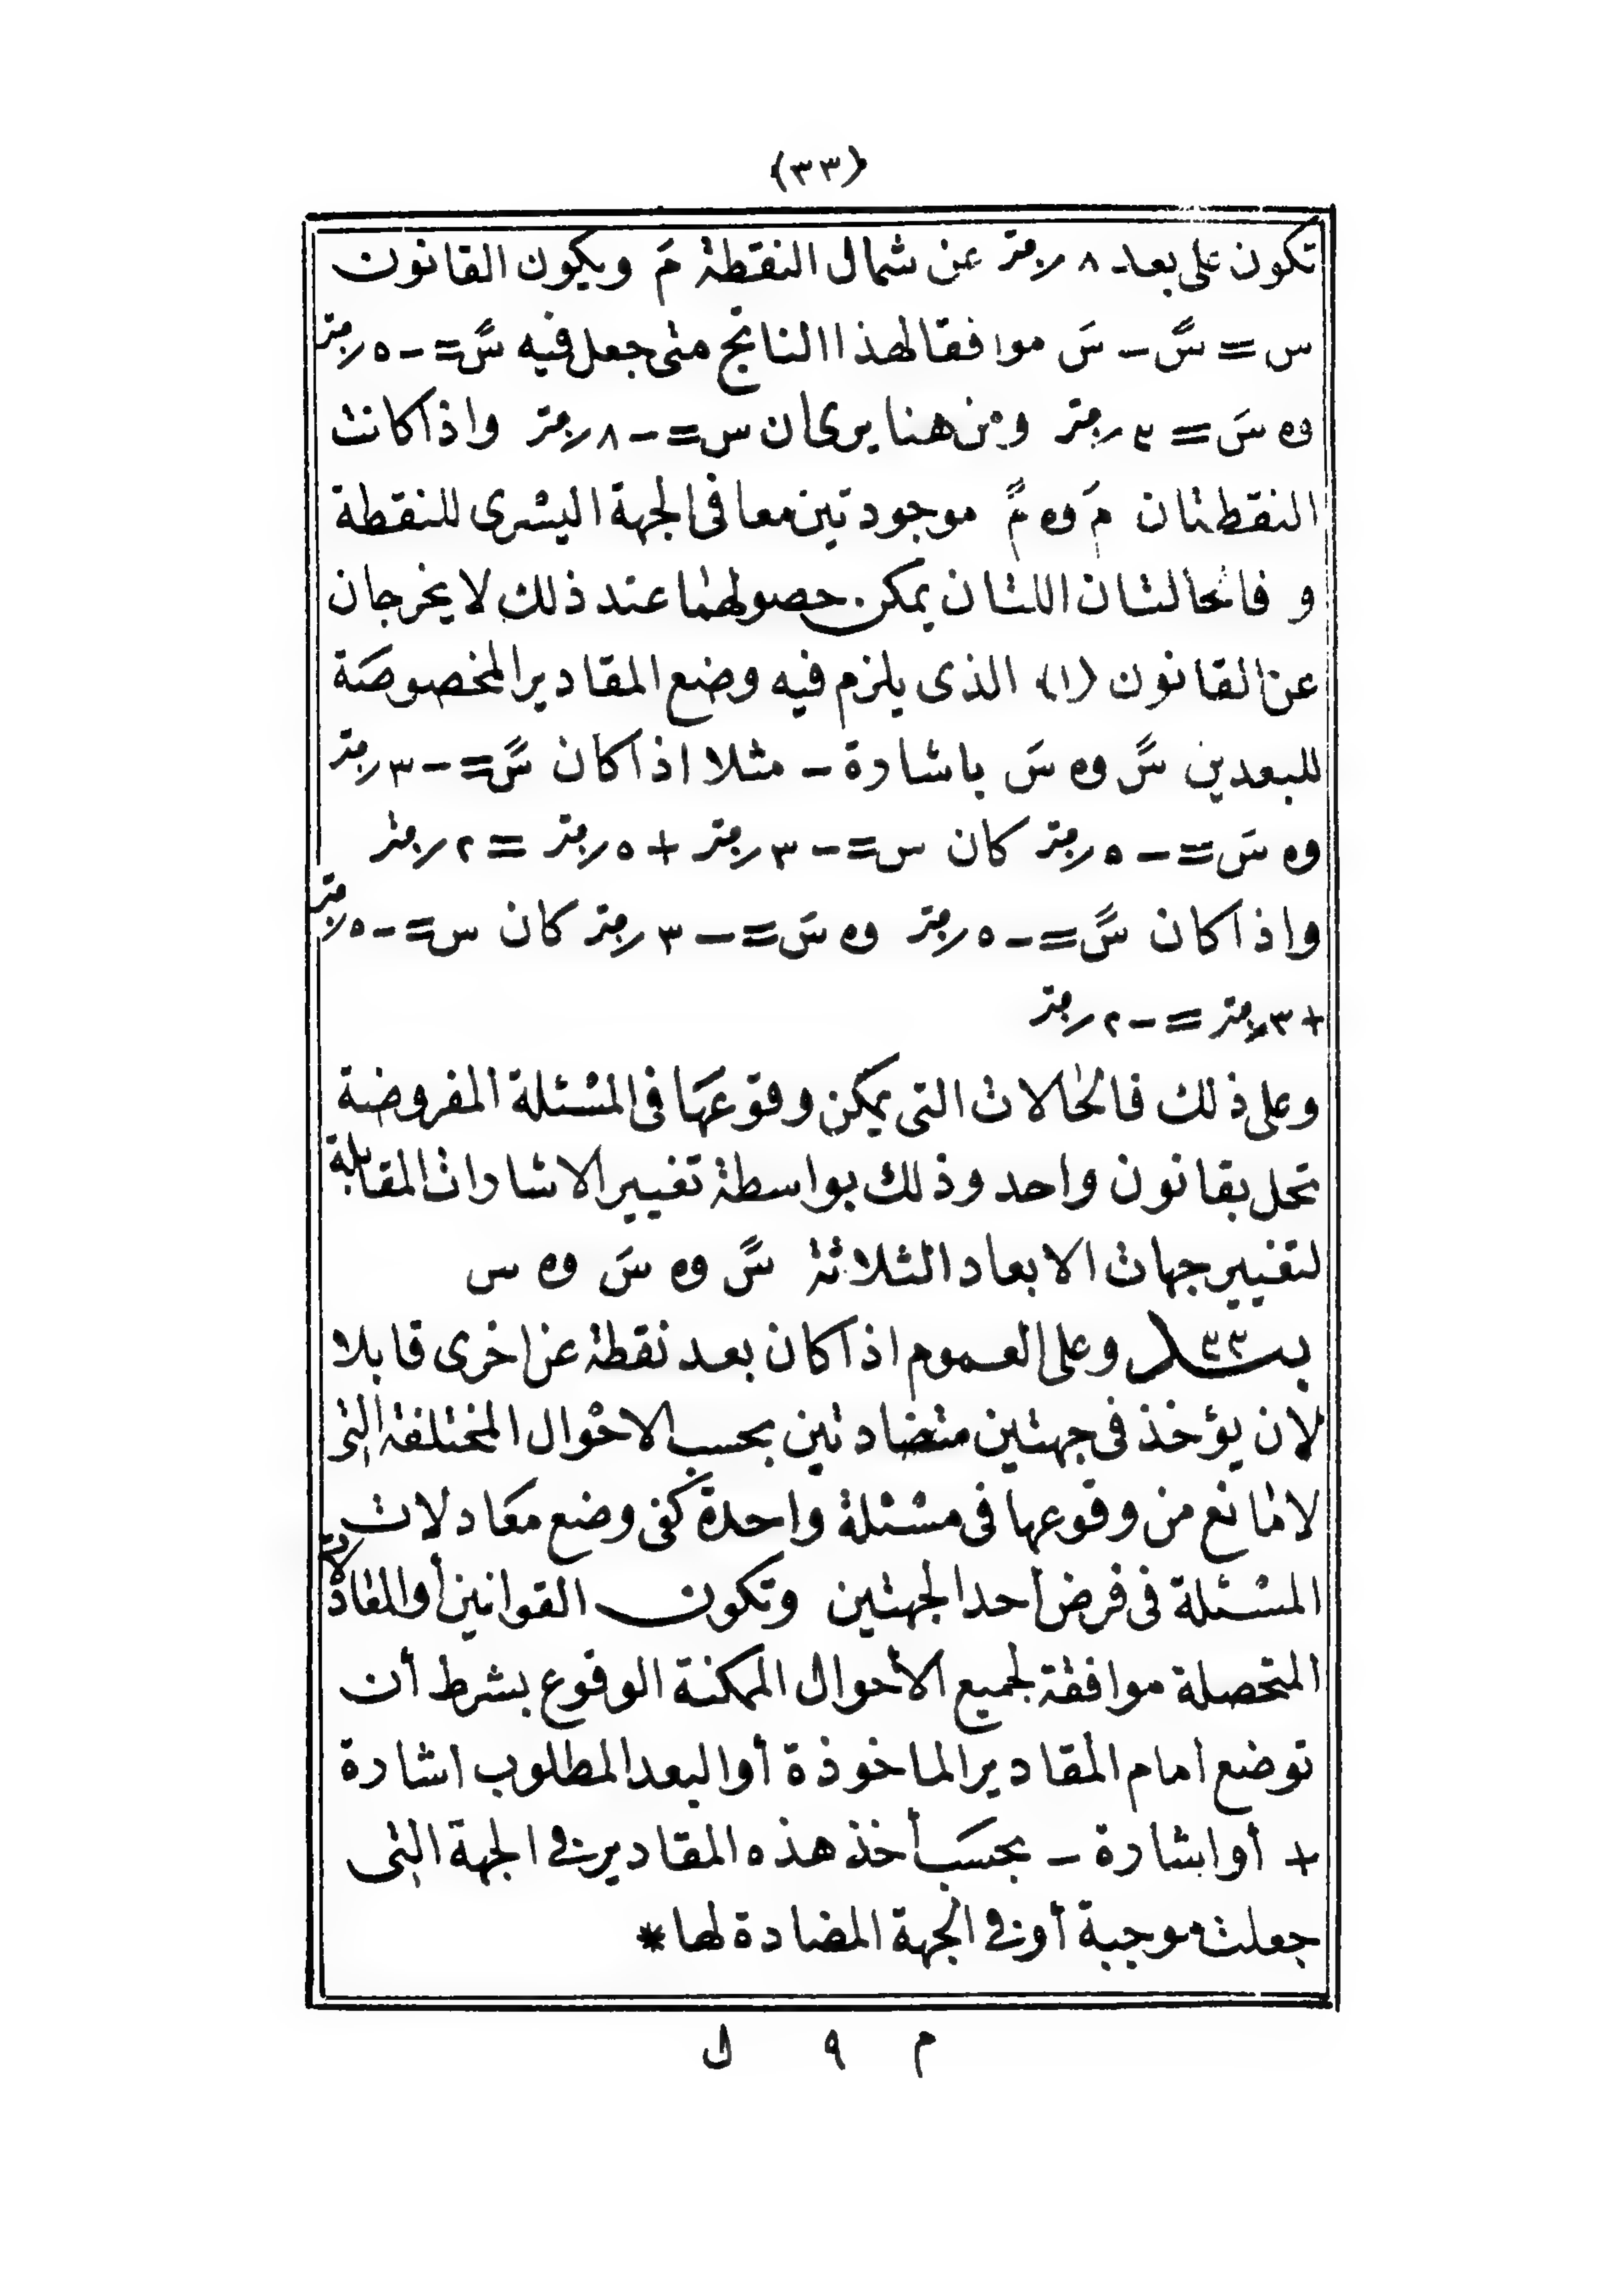 (٣٣)
تكون على بعد ٨ر متر عن شمال النقطة مَ ويكون القانون
س = سً – سَ موافقا لهذا الناتج متى جعل فيه سً = – ٥ر متر
وه سَ = ٣ر متر ومن هنا يرى ان س = – ٨ر متر واذا كانت
النقطتان مَ وه مً موجودتين معا فى الجهة اليسرى للنقطة
و فالحالتان اللتان يمكن حصولهما عند ذلك لا يخرجان
عن القانون (١) الذى يلزم فيه وضع المقادير المخصوصة
للبعدين سً وه سَ باشارة – مثلا اذا كان سً = – ٣ر متر
وه سَ = – ٥ر متر كان س = – ٣ر متر + ٥ر متر = ٢ر متر
واذا كان سً = – ٥ر متر وه سَ = – ٣ر متر كان س = – ٥ر متر
+ ٣ر متر = – ٢ر متر
وعلى ذلك فالحالات التى يمكن وقوعها فى المسئلة المفروضة
تحل بقانون واحد وذلك بواسطة تغيير الاشارات المقابلة
لتغيير جهات الابعاد الثلاثة سً وه سَ وه س
بند ٣٣ وعلى العموم اذا كان بعد نقطة عن اخرى قابلا
لان يؤخذ فى جهتين متضادتين بحسب الاحوال المختلفة التى
لا مانع من وقوعها فى مسئلة واحدة كفى وضع معادلات
المسئلة فى فرض أحد الجهتين وتكون القوانين أو المعادلات
المتحصلة موافقة لجميع الأحوال الممكنة الوقوع بشرط أن
توضع أمام المقادير الماخوذة أو البعد المطلوب اشارة
+ أو اشارة – بحسب أخذ هذه المقادير فى الجهة التى
جعلت موجبة أو فى الجهة المضادة لها *
م ٩ ل